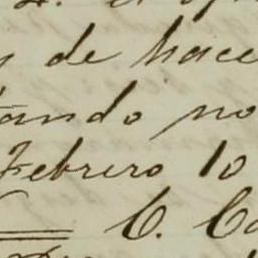 de hace
ando no
Febrero 10
C. Co